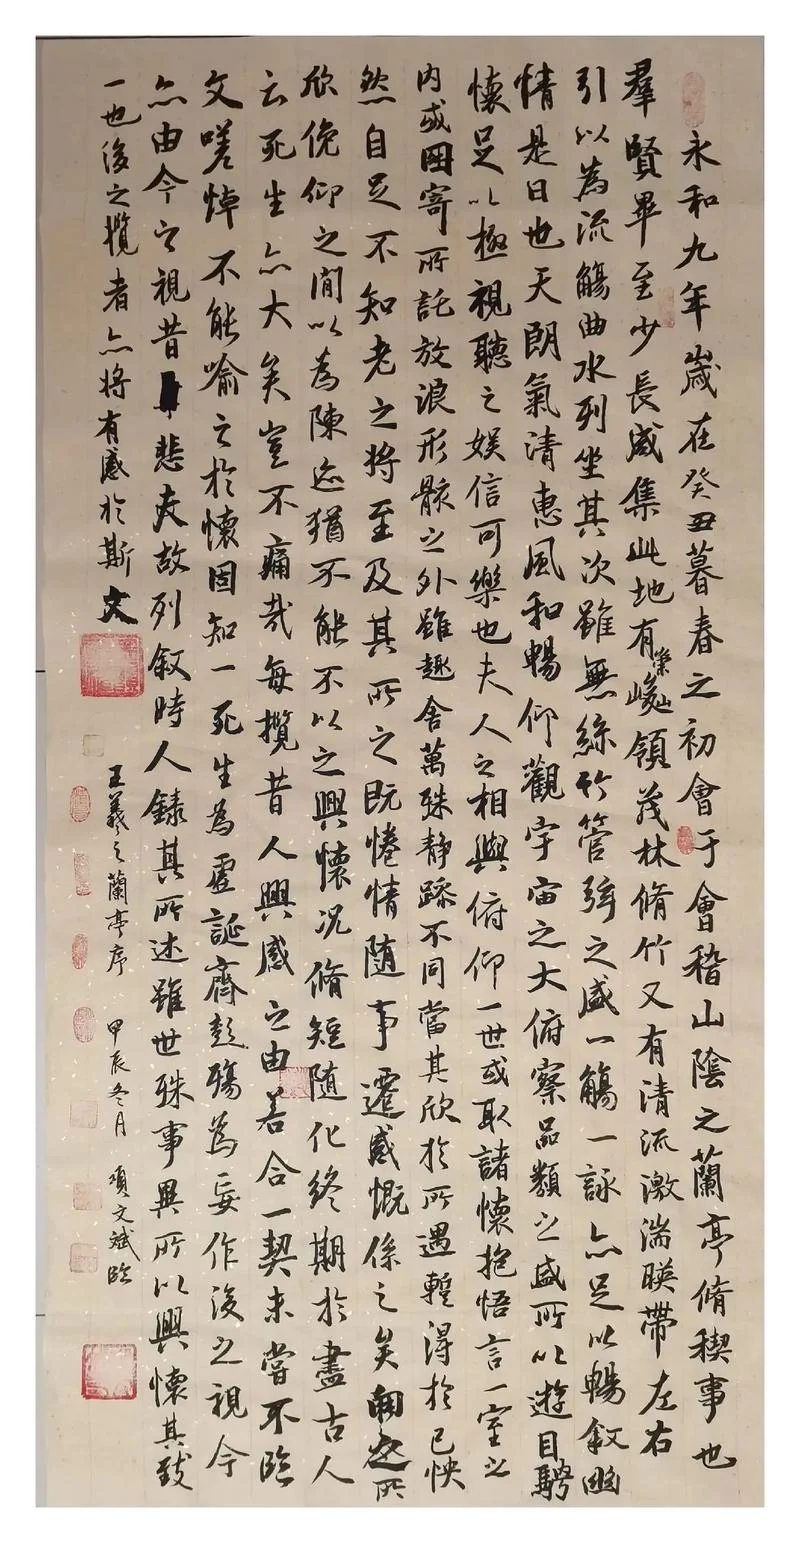 永和九年歲在癸丑暮春之初會于會稽山陰之蘭亭脩稧事也
羣賢畢至少長咸集此地有崇山峻領茂林脩竹又有清流激湍暎帶左右
引以為流觴曲水列坐其次雖無絲竹管弦之盛一觴一詠亦足以暢敘幽
情是日也天朗氣清惠風和暢仰觀宇宙之大俯察品類之盛所以遊目騁
懷足以極視聽之娛信可樂也夫人之相與俯仰一世或取諸懷抱悟言一室之
內或因寄所託放浪形骸之外雖趣舍萬殊靜躁不同當其欣於所遇蹔得於己怏
然自足不知老之將至及其所之既惓情隨事遷感慨係之矣向之所
欣俛仰之閒以為陳迹猶不能不以之興懷況脩短隨化終期於盡古人
云死生亦大矣豈不痛哉每攬昔人興感之由若合一契未嘗不臨
文嗟悼不能喻之於懷固知一死生為虛誕齊彭殤為妄作後之視今
亦由今之視昔悲夫故列敘時人錄其所述雖世殊事異所以興懷其致
一也後之攬者亦將有感於斯文
王羲之蘭亭序 甲辰冬月 項文斌臨